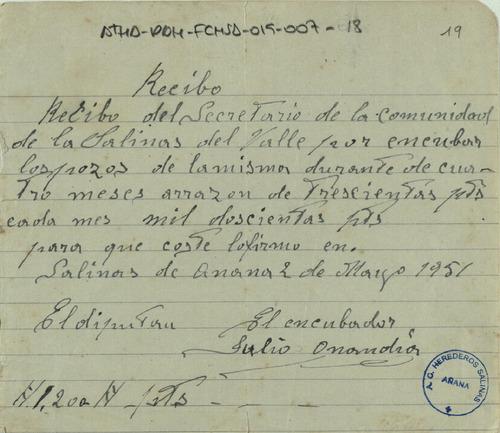 ATHA-DAH-FCMSA-019-007-18
19
Recibo
Recibo del Secretario de la comunidad
de la Salinas del Valle por encubar
los pozos de lamisma durante de cua-
tro meses arrazon de trescientas pts
cada mes mil doscientas pts
para que coste lofirmo en.
Salinas de Anana 2 de Mayo 1951
El diputau El encubador
Julio Onandia
# 1,200 # pts
A.C. HEREDEROS SALINAS
AÑANA